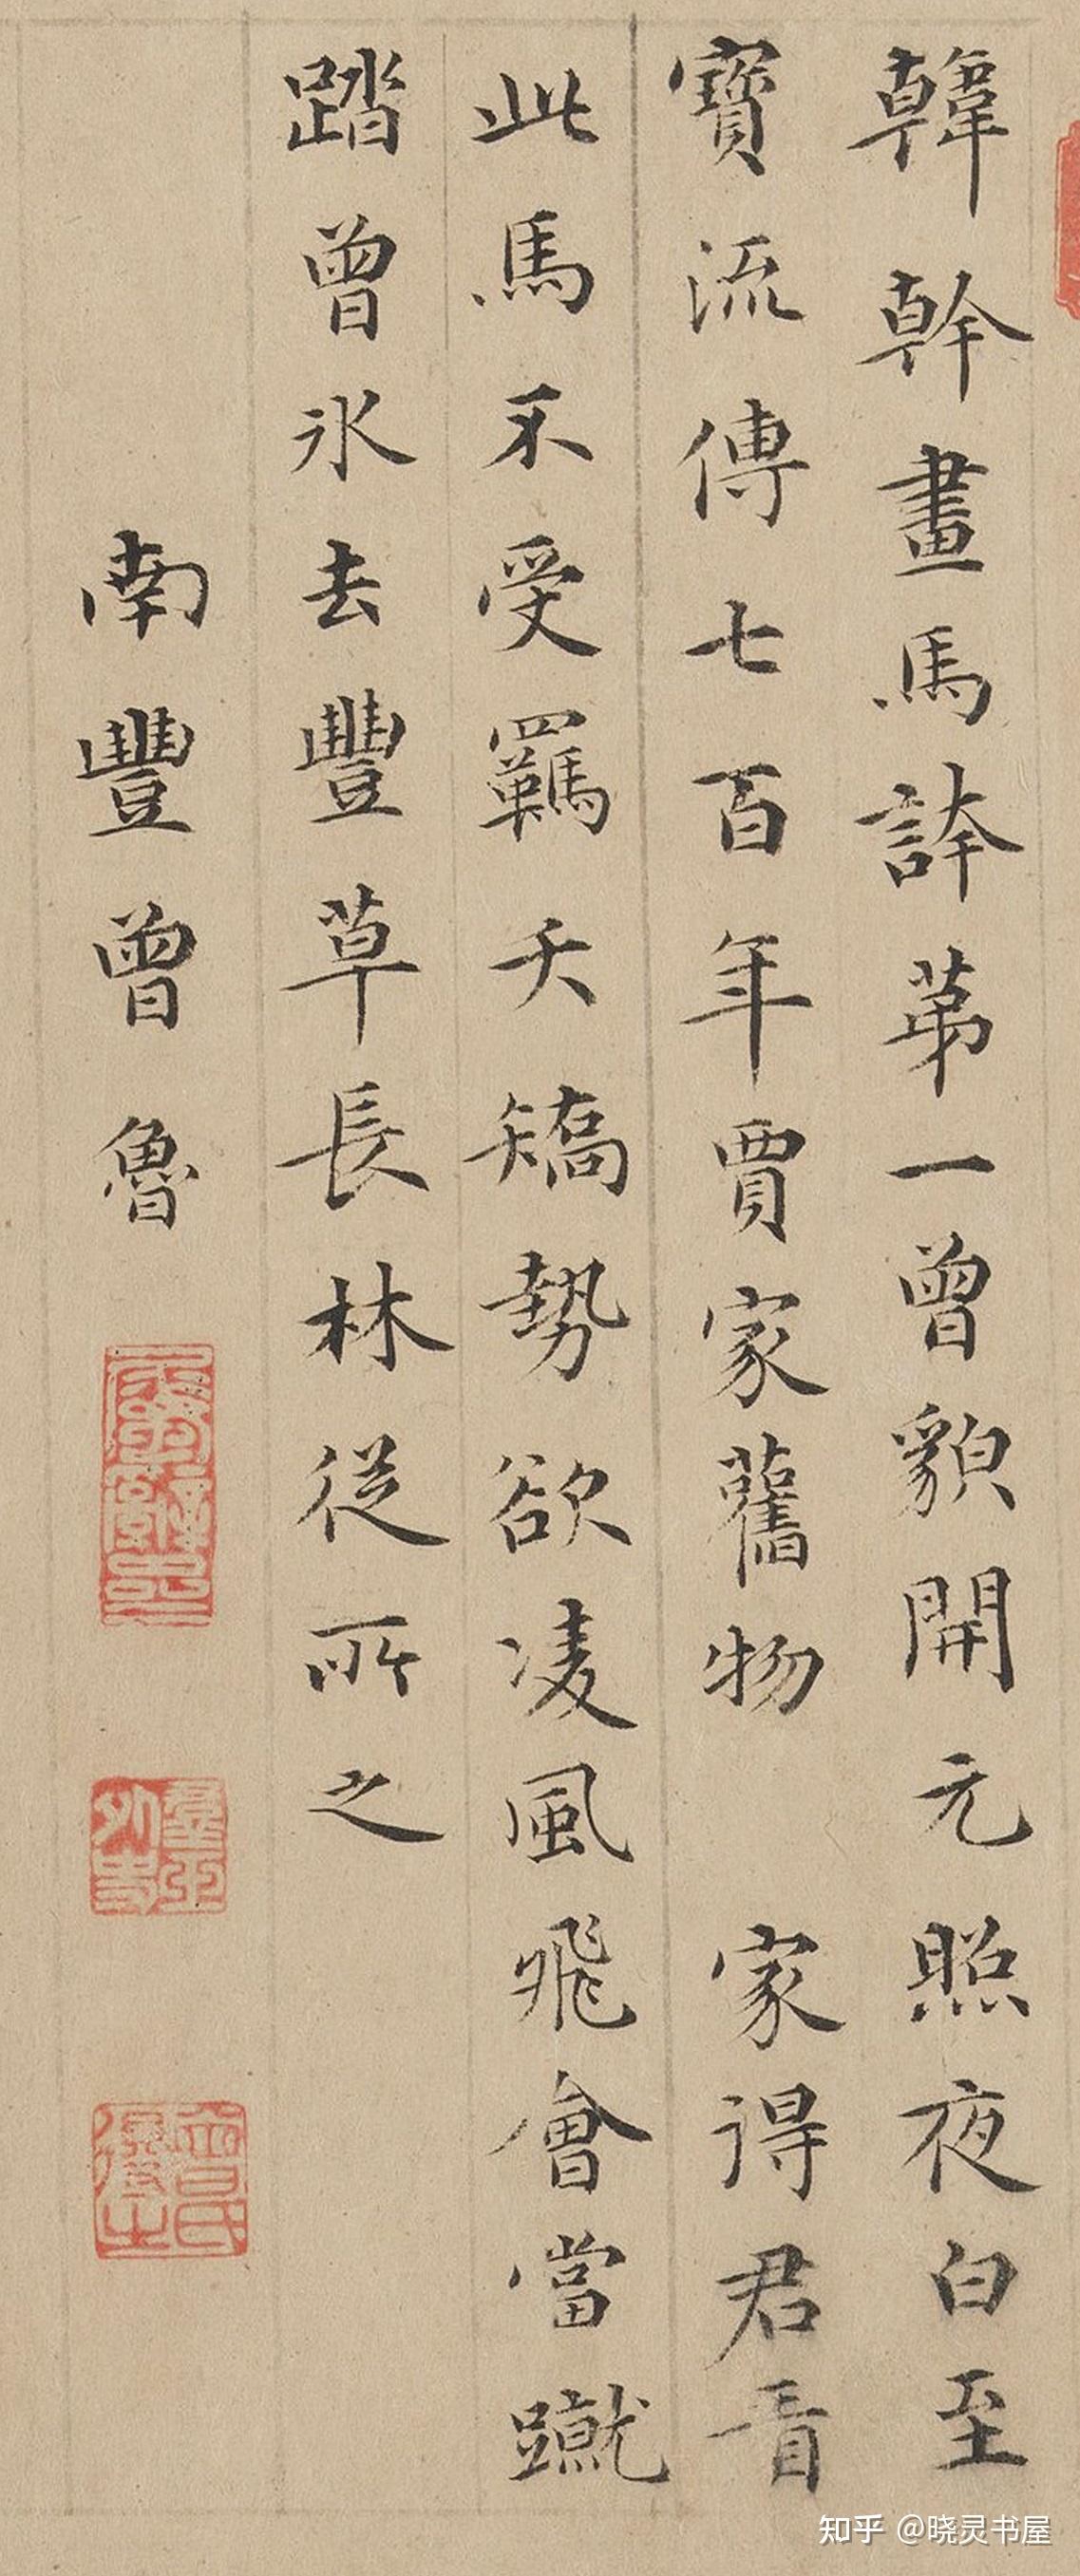 韓幹畫馬誇苐一曾貌開元照夜白至
寶流傳七百年賈家舊物 家得君看
此馬不受羈夭矯勢欲凌風飛會當蹴
踏曾氷去豐草長林從所之
南豐曾魯
知乎 @晓灵书屋